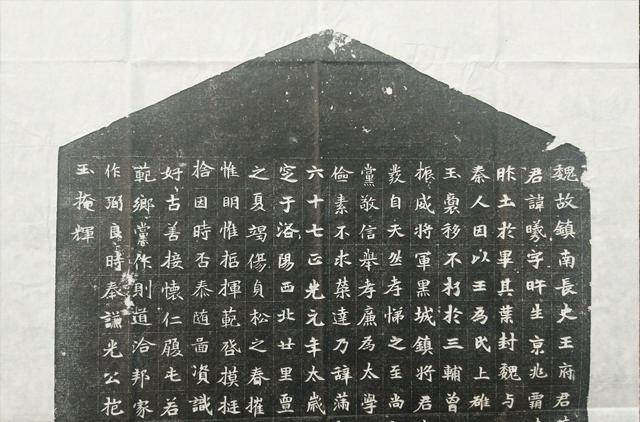 魏故鎮南長史王府君
君諱曦字旿生京兆霸
胙土於畢其葉封魏与
秦人因以王為氏上雄
玉裏移不朽於三輔曾
振威將軍黑城鎮將君
裁自天然孝悌之至尚
黨敬信舉孝廉為太學
儉素不求榮達乃辞滿
六十七正光元年太歲
窆于洛陽西北廿里亶
之夏竭傷貞松之春摧
惟明惟悊揮範啓摸挺
捨因時否泰随啚資識
好古善接懷仁履屯若
範鄉黨作則道洽邦家
作弼良時奉謙光公抱
玉掩輝